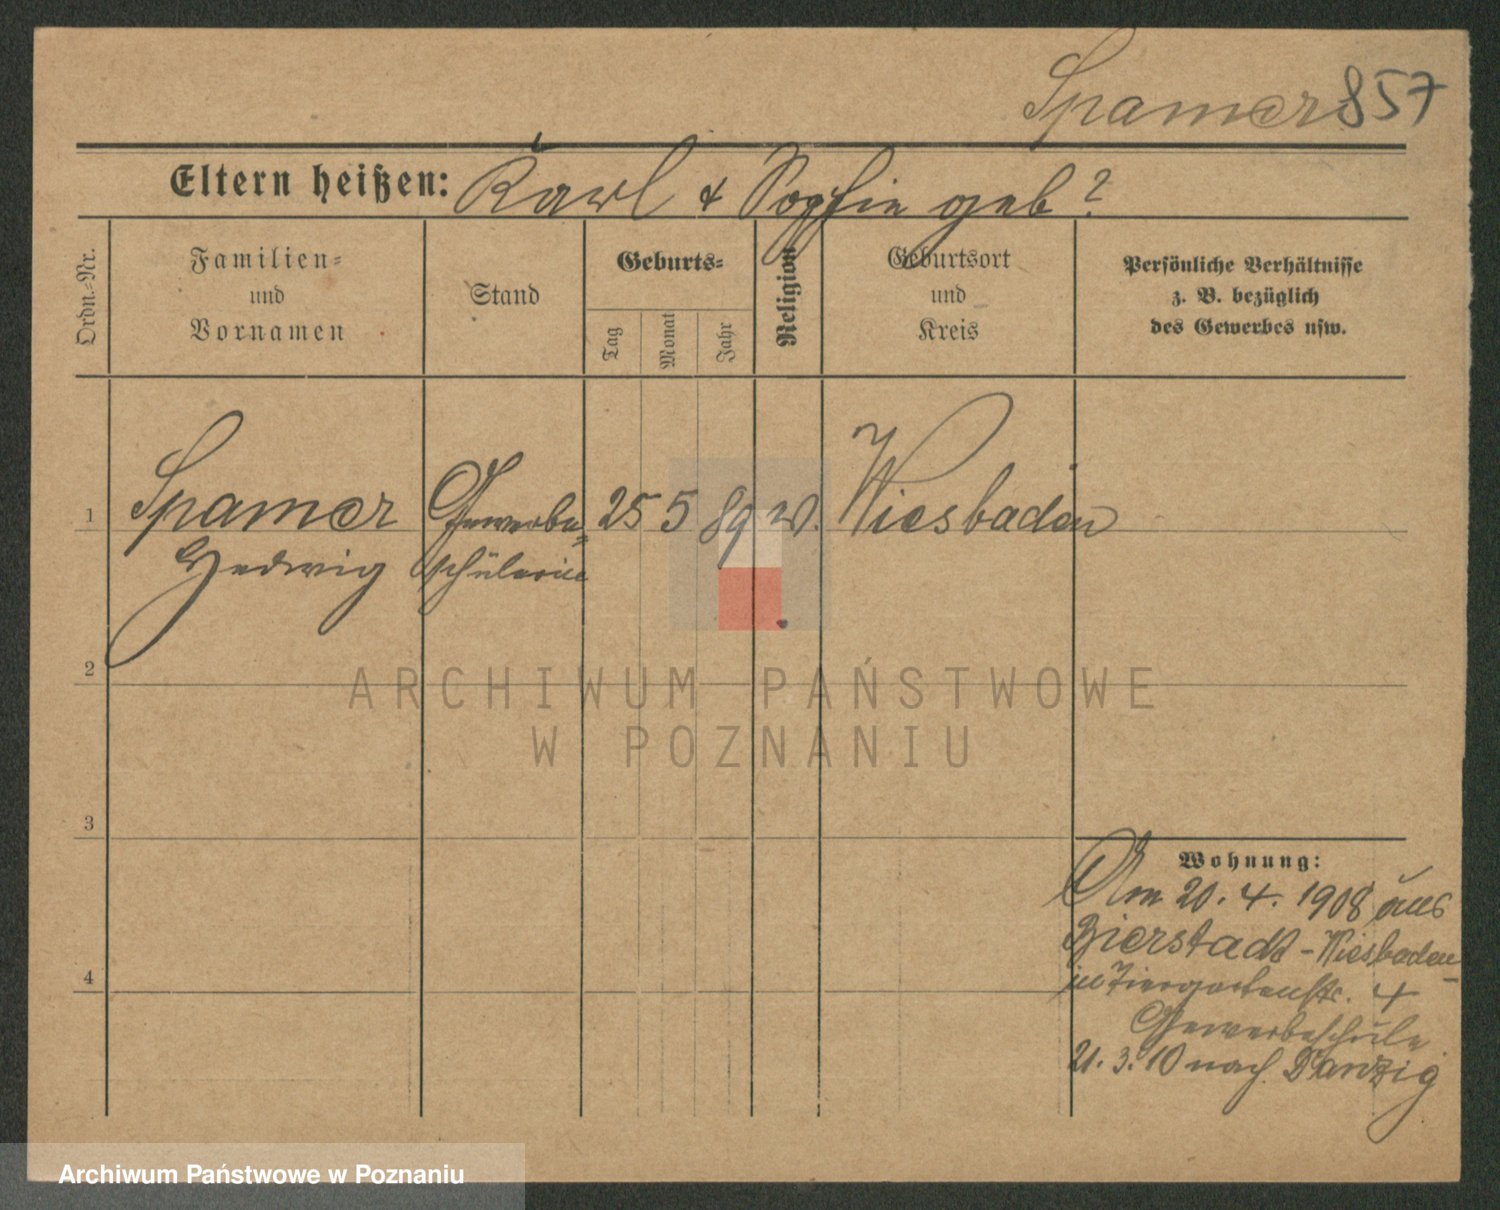 Spamer 857
Eltern heißen: Karl & Sophie geb?
Ordn.-Nr.
Familien-
und
Vornamen
Stand
Geburts-
Tag
Monat
Jahr
Religion
Geburtsort
und
Kreis
Persönliche Verhältnisse
z. B. bezüglich
des Gewerbes usw.
1 Spamer Gewerbe= 25 5 89 Wiesbaden
Hedwig schülerin
2
ARCHIWUM PAŃSTWOWE
W POZNANIU
3
Wohnung:
Am 20.4.1908 aus
Bierstadt-Wiesbaden-
in Tiergartenstr. 4
4
Gewerbeschule
21.3.10 nach Danzig
Archiwum Państwowe w Poznaniu